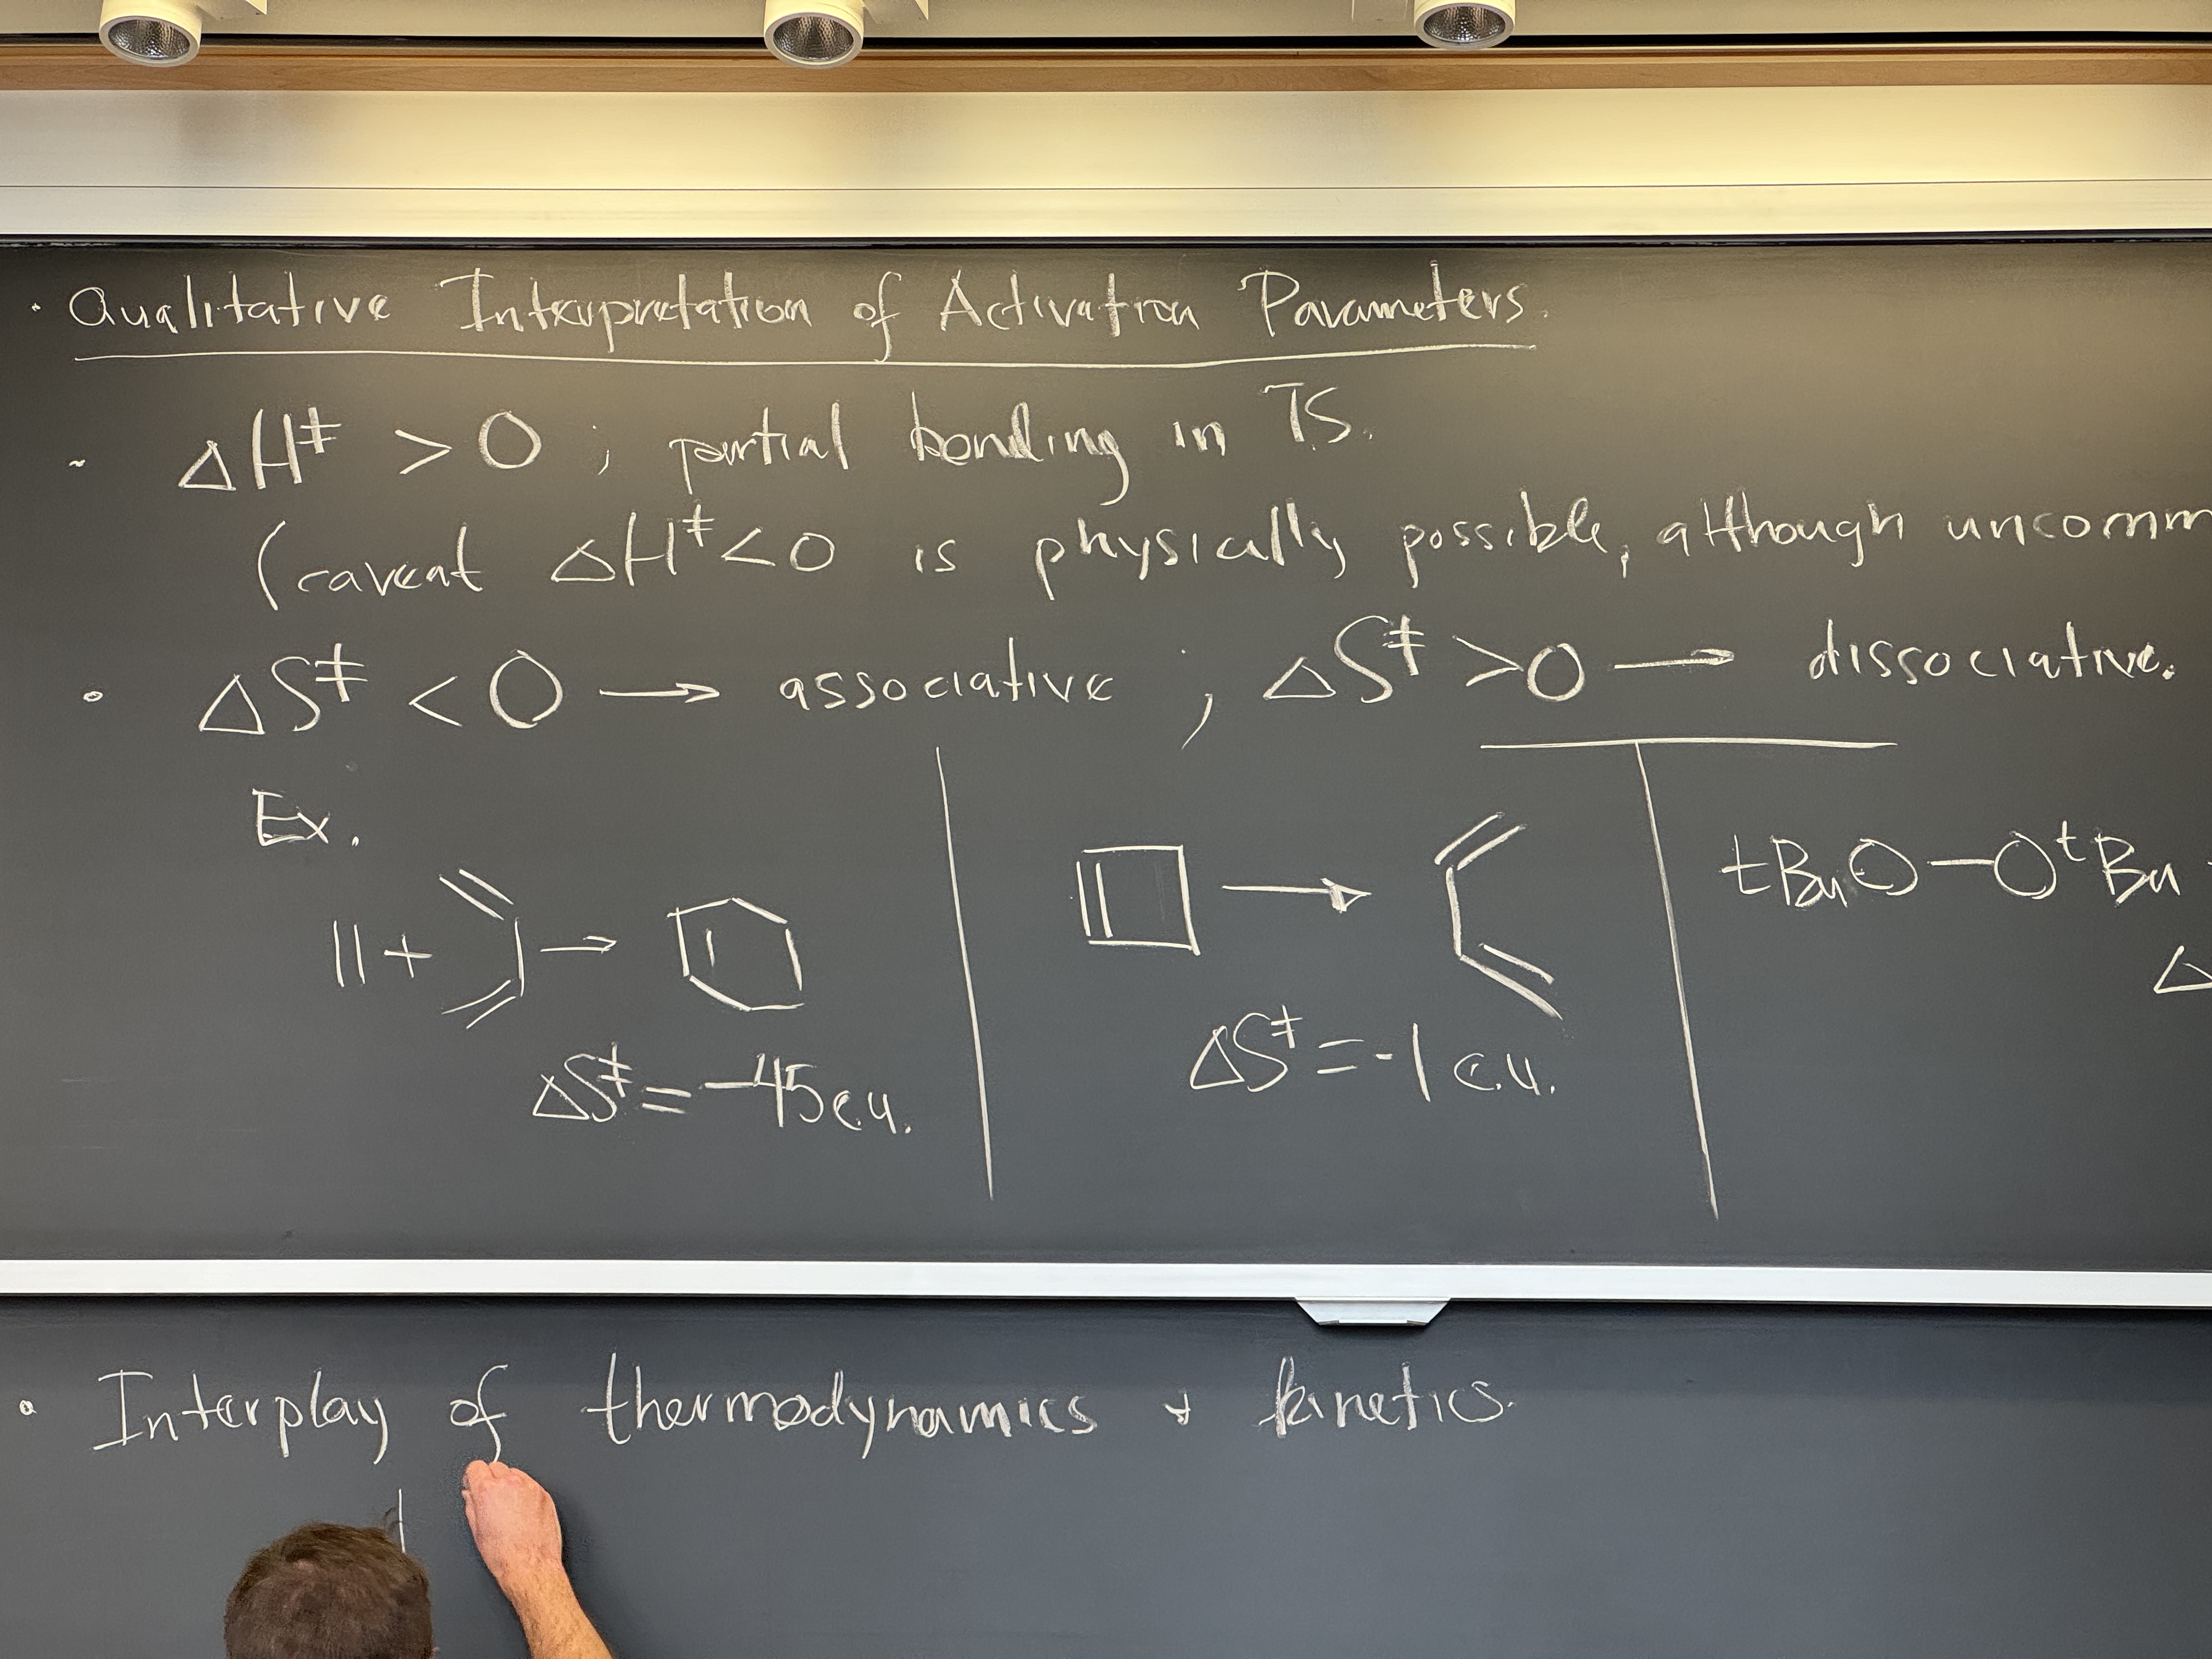 · Qualitative Interpretation of Activation Parameters.
- ΔH‡ > 0 ; partial bonding in TS.
(caveat ΔH‡<0 is physically possible, although uncomm
∘ ΔS‡ < 0 → associative ; ΔS‡ >0 → dissociative.
Ex.
+ →
ΔS‡ = -45 e.u.
→
ΔS‡ = -1 e.u.
tBuO-OtBu
Δ
∘ Interplay of thermodynamics + kinetics.